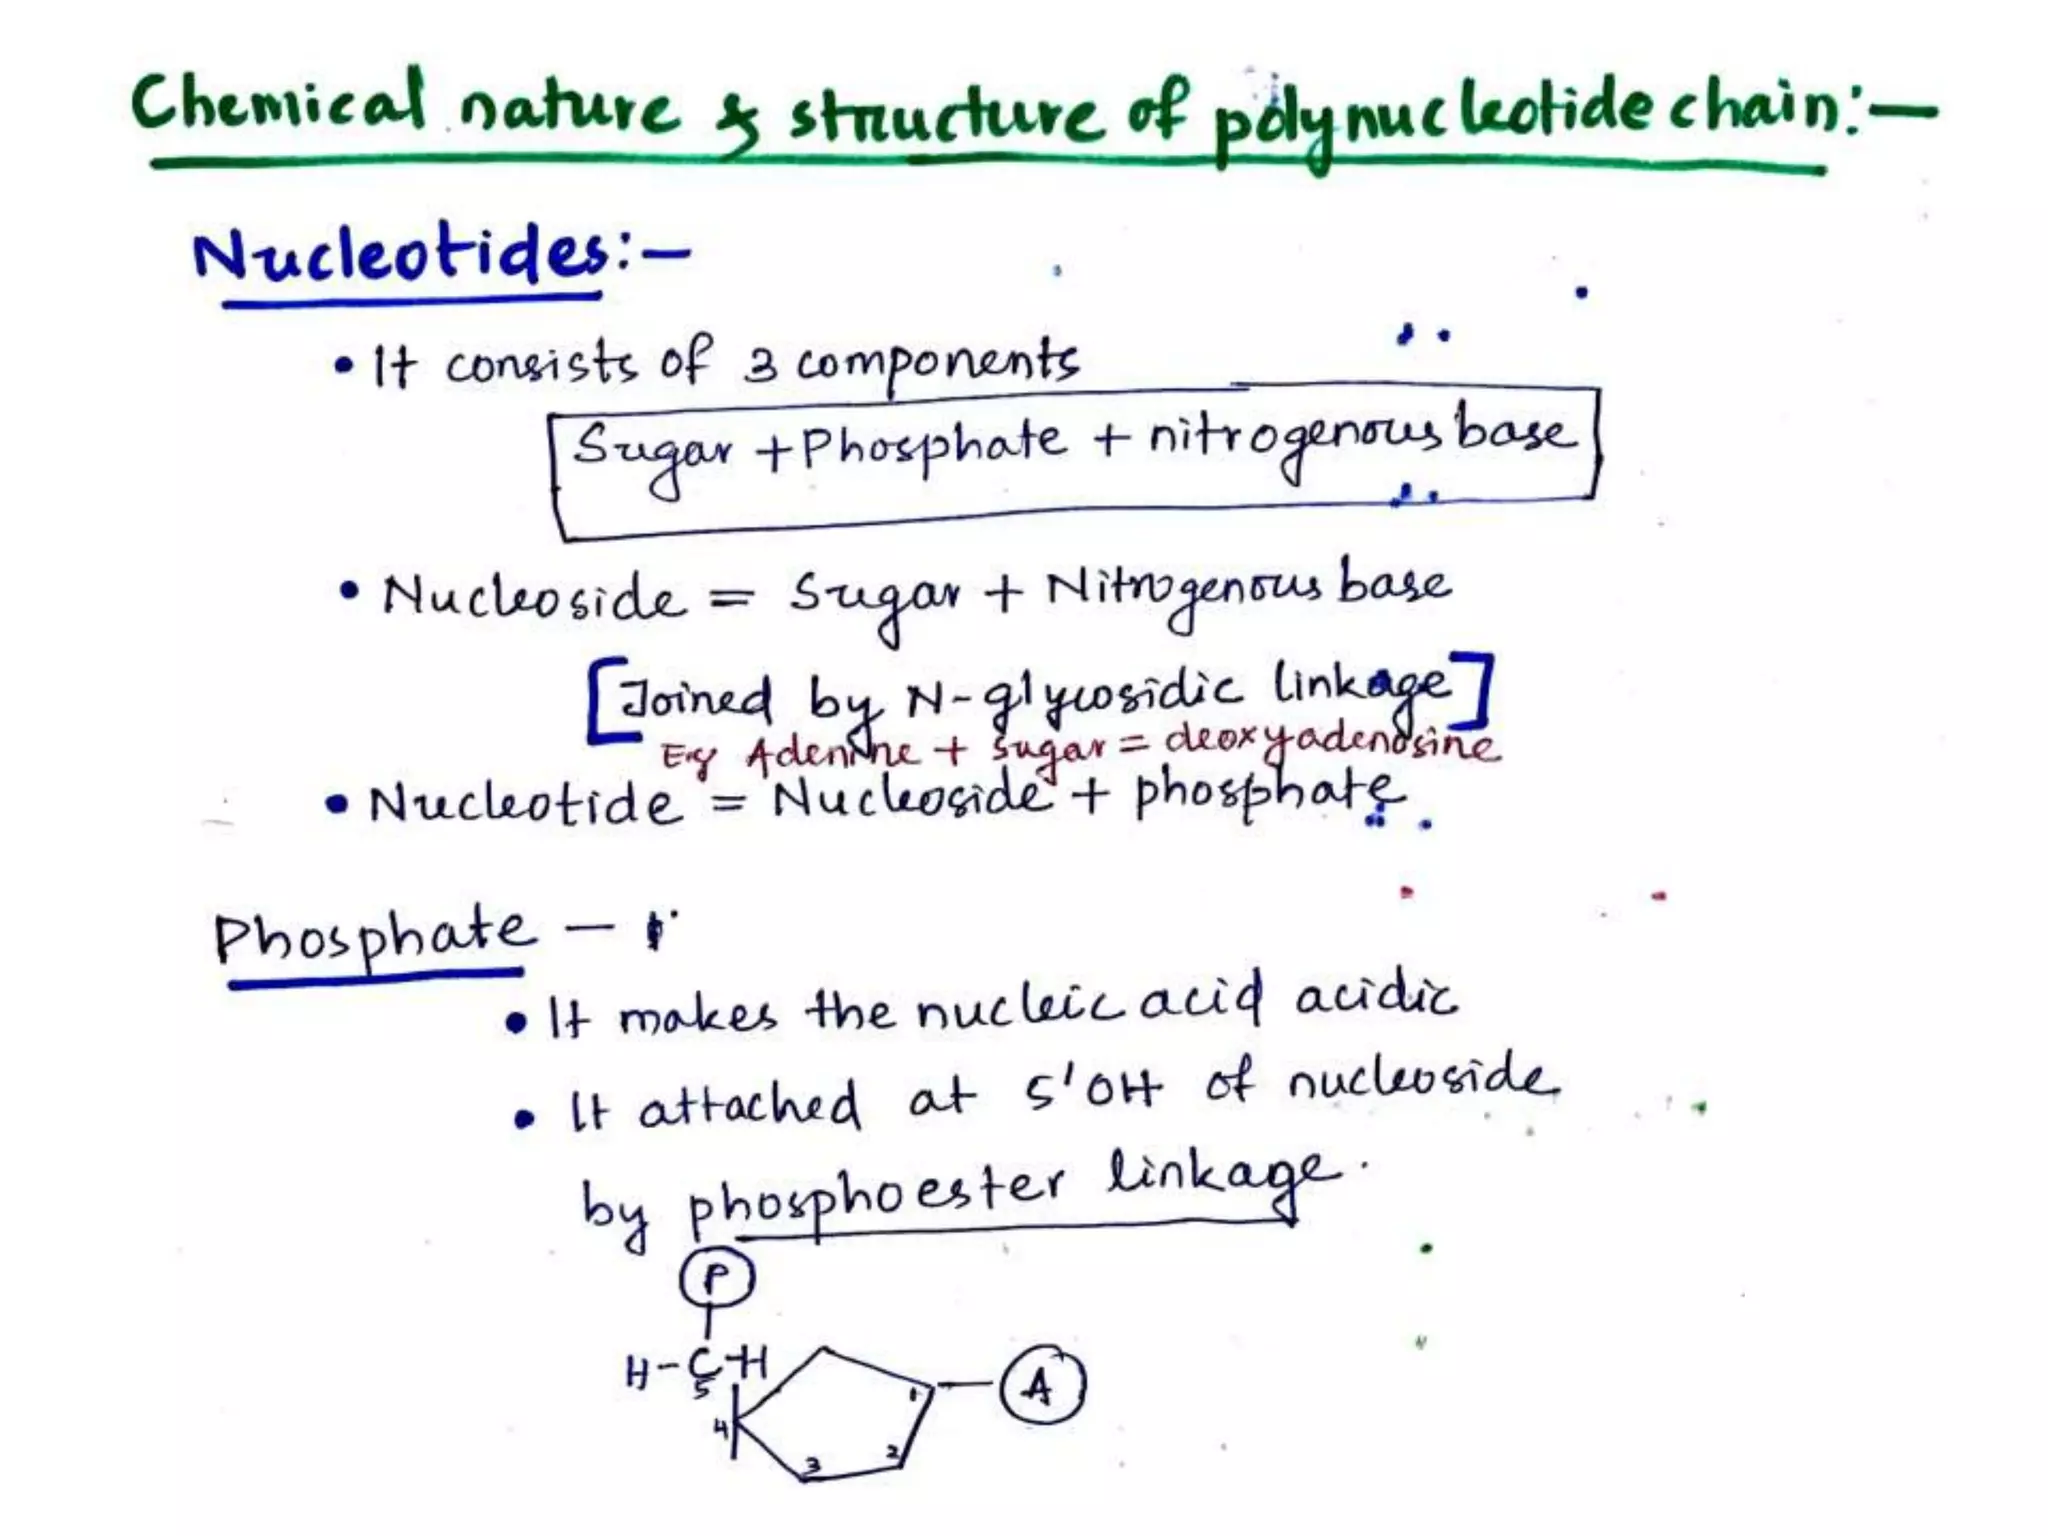 Chemical nature & structure of polynucleotide chain:-
Nucleotides:-
• It consists of 3 components
Sugar + Phosphate + nitrogenous base
• Nucleoside = Sugar + Nitrogenous base
[Joined by N-glycosidic linkage]
Eg Adenine + sugar = deoxyadenosine
• Nucleotide = Nucleoside + phosphate
Phosphate -
• It makes the nucleic acid acidic
• It attached at 5'OH of nucleoside
by phosphoester linkage.
P
H-C-H
5
A
1
4
2
3